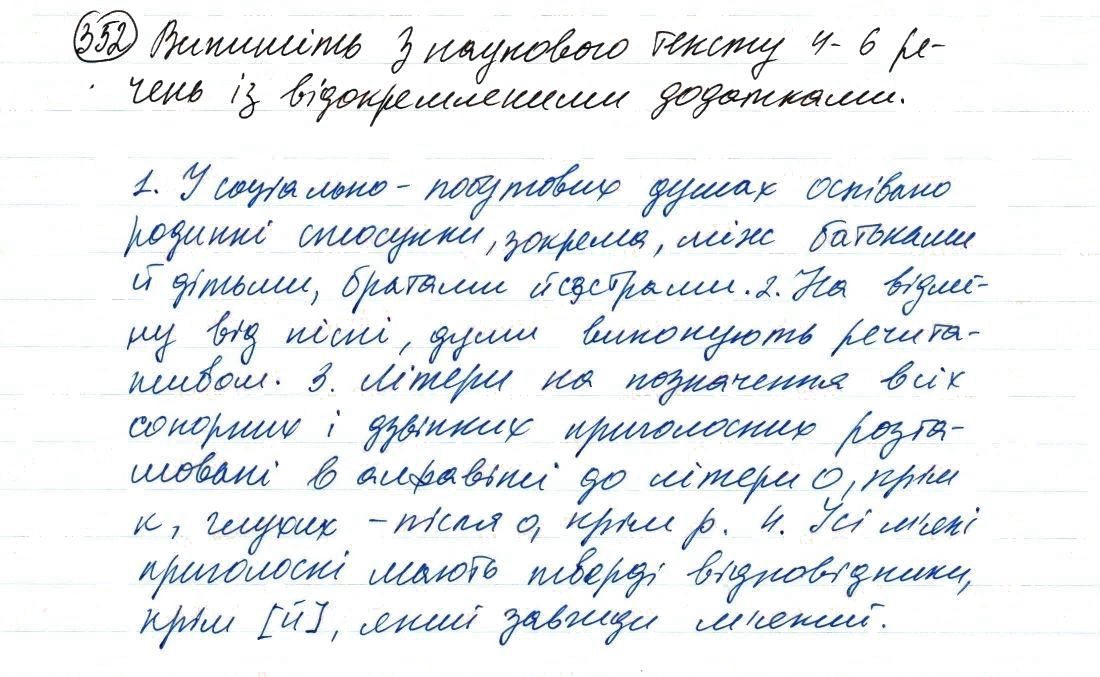 352 Випишіть з наукового тексту 4-6 ре-
чень із відокремленими додатками.
1. У соціально-побутових думах оспівано
родинні стосунки, зокрема, між батьками
й дітьми, братами й сестрами. 2. На відмі-
ну від пісні, думи виконують речита-
тивом. 3. Літери на позначення всіх
сонорних і дзвінких приголосних розта-
шовані в алфавіті до літери О, крім
к, глухих - після о, крім р. 4. Усі м'які
приголосні мають тверді відповідники,
крім [й], який завжди м'який.